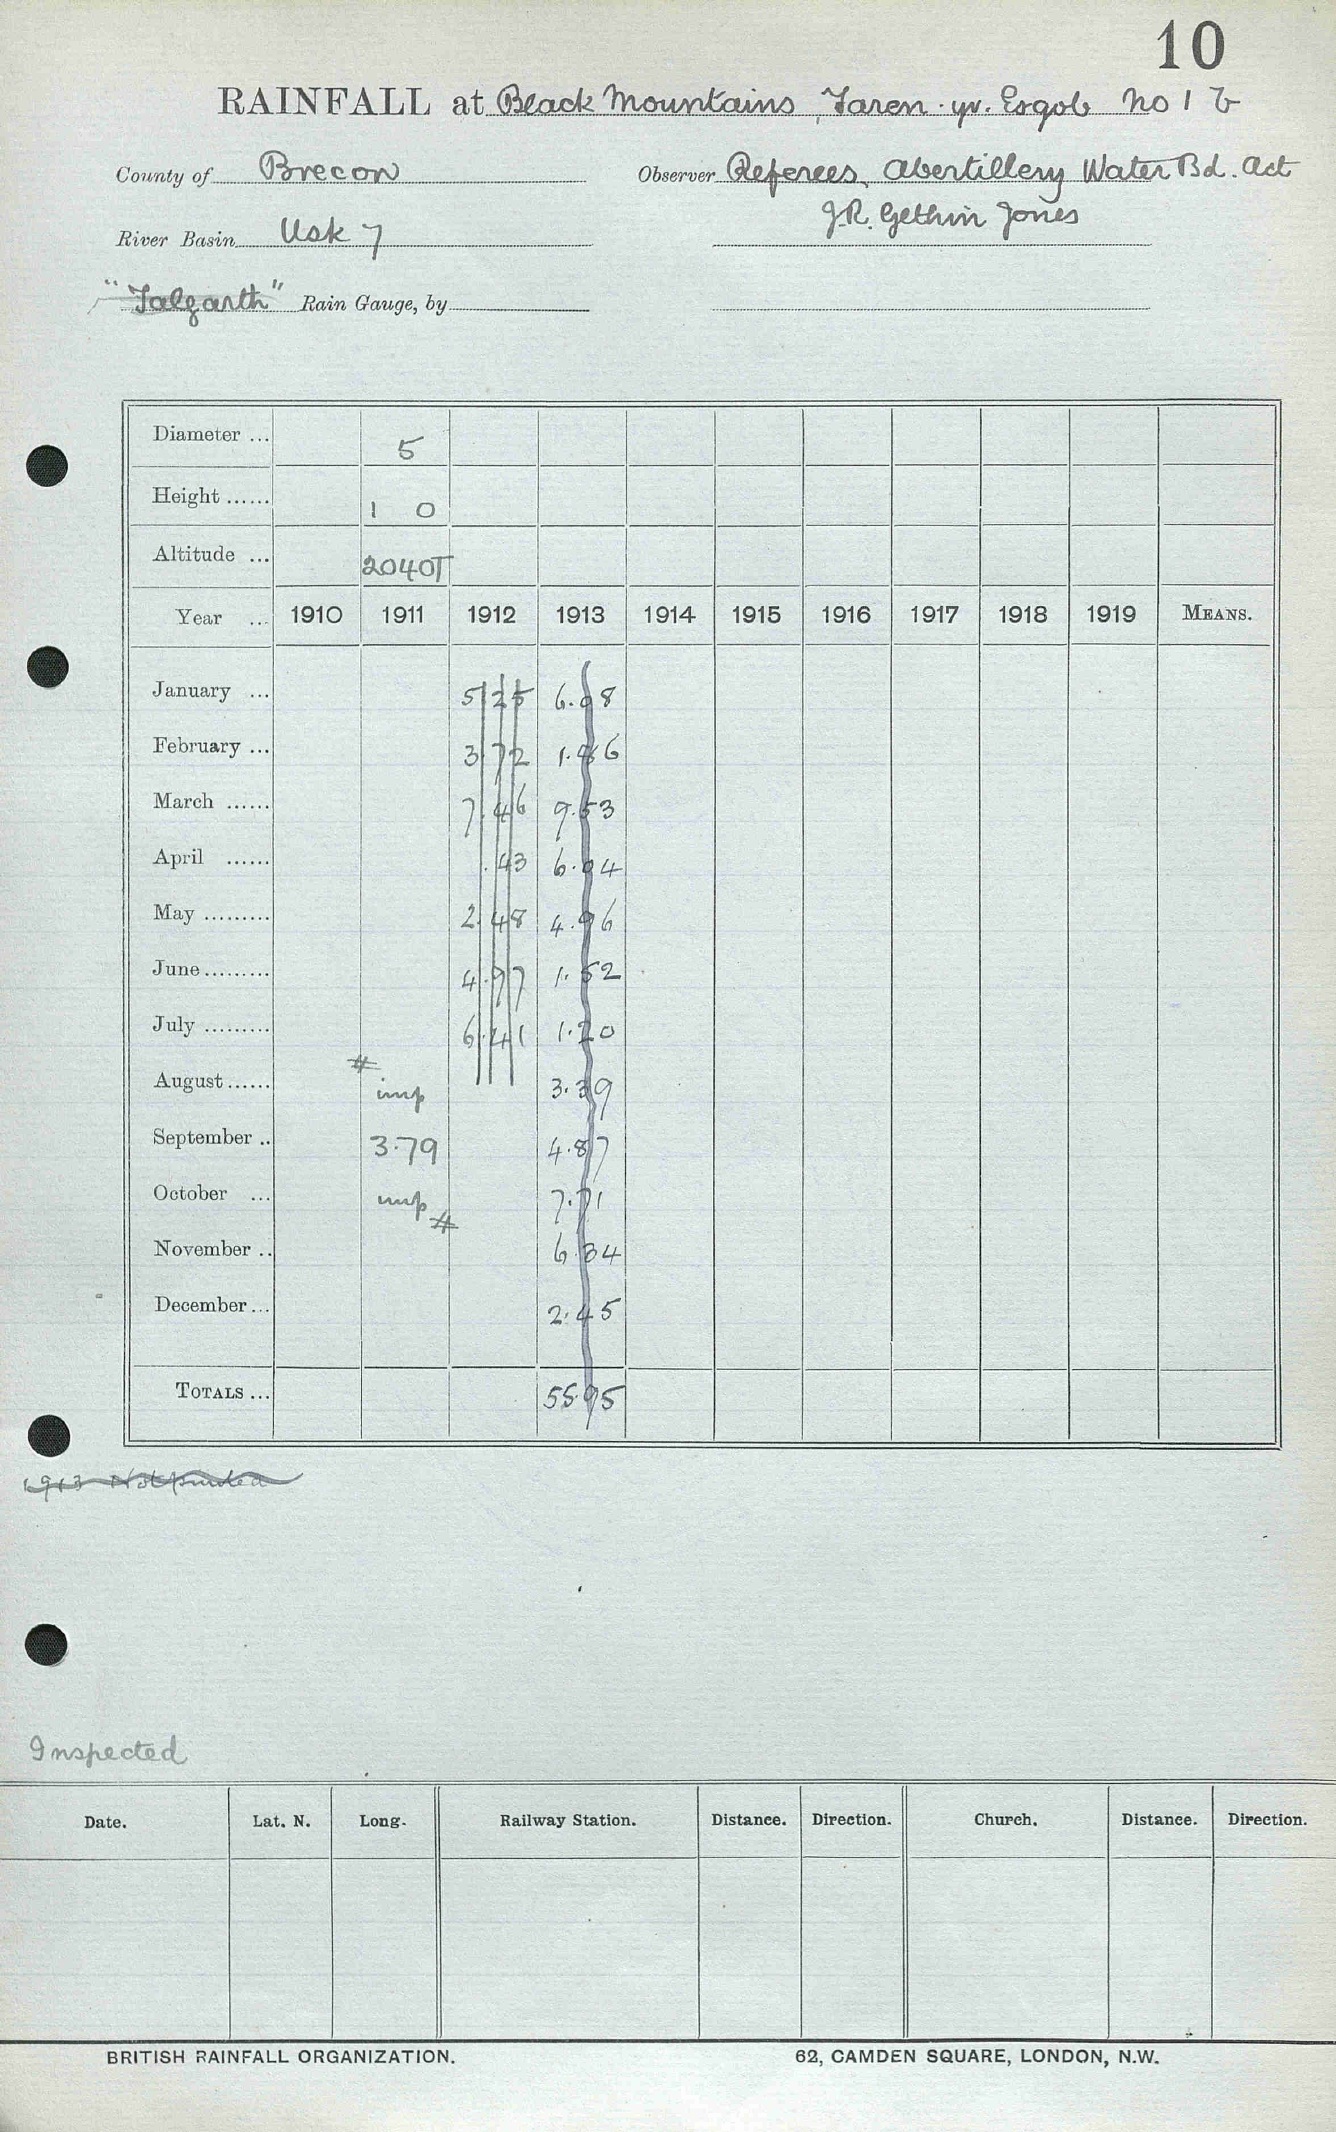 10
RAINFALL at Black Mountains, Taren yr. Esgob No 1 b
County of Brecon Observer Referees, Abertillery Water Bd. Act
River Basin Usk 7 J.R. Gethin Jones
"Talgarth" Rain Gauge, by
Diameter ... 5
Height ...... 1 0
Altitude ... 2040T
Year ... 1910 1911 1912 1913 1914 1915 1916 1917 1918 1919 MEANS.
January ... 5 25 6.08
February ... 3.72 1.86
March ...... 7.46 9.53
April ...... .43 6.04
May ......... 2.48 4.96
June ......... 4.97 1.52
July ......... 6.41 1.20
August ...... # imp 3.39
September .. 3.79 4.87
October ... imp # 7.71
November .. 6.34
December ... 2.45
TOTALS ... 55.95
1913 Not printed
Inspected
Date. Lat. N. Long. Railway Station. Distance. Direction. Church. Distance. Direction.
BRITISH RAINFALL ORGANIZATION. 62, CAMDEN SQUARE, LONDON, N.W.